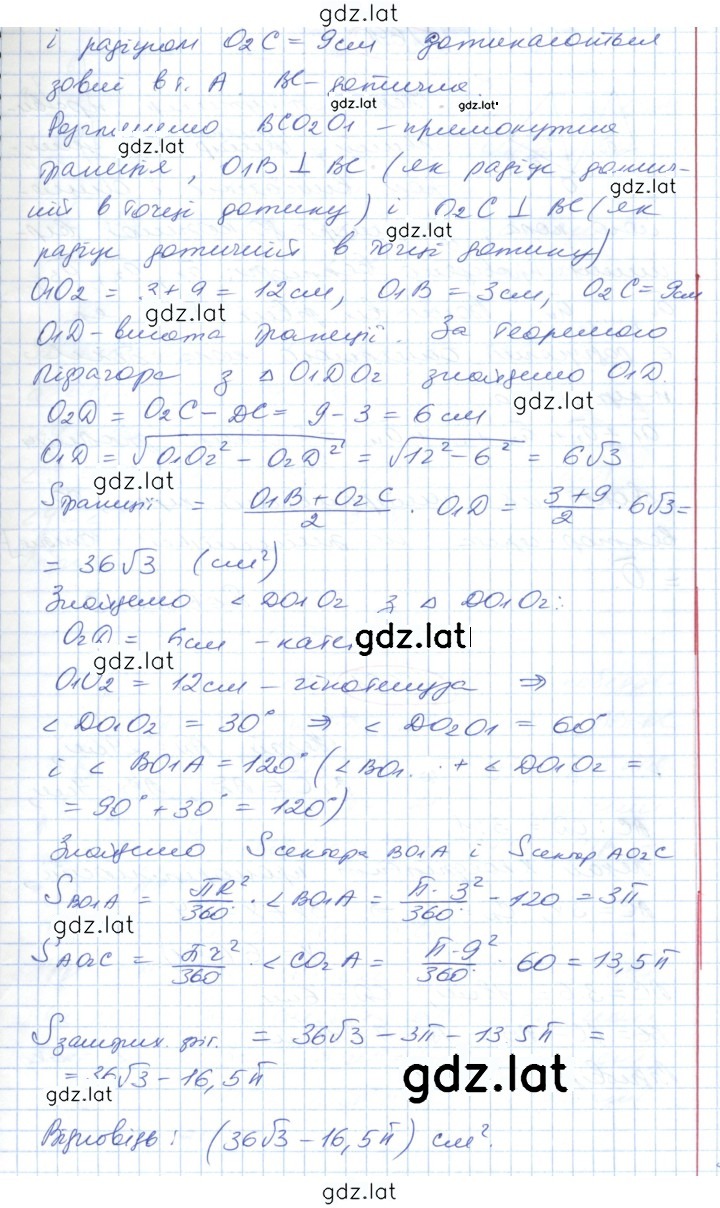 gdz.lat
і радіусом O₂C = 9см дотикаються
зовні в т. A. BC – дотична.
gdz.lat gdz.lat
Розглянемо BCO₂O₁ – прямокутна
gdz.lat
трапеція, O₁B ⊥ BC (як радіус дотич-
gdz.lat
ний в точці дотику) і O₂C ⊥ BC (як
gdz.lat
радіус дотичній в точці дотику)
O₁O₂ = 3 + 9 = 12см, O₁B = 3см, O₂C = 9см
gdz.lat
O₁D – висота трапеції. За теоремою
Піфагора з △ O₁DO₂ знайдемо O₁D.
gdz.lat
O₂D = O₂C – DC = 9 – 3 = 6 см
O₁D = √(O₁O₂² – O₂D²) = √(12² – 6²) = 6√3
gdz.lat
Sтрапеції = (O₁B + O₂C)/2 · O₁D = (3 + 9)/2 · 6√3 =
= 36√3 (см²)
Знайдемо < DO₁O₂ з △ DO₁O₂:
O₂D = 6см – кате
gdz.lat
gdz.lat
O₁O₂ = 12см – гіпотенуза ⇒
< DO₁O₂ = 30° ⇒ < DO₂O₁ = 60°
і < BO₁A = 120° (< BO₁ + < DO₁O₂ =
= 90° + 30° = 120°)
Знайдемо Sсектора BO₁A і Sсектор AO₂C
S BO₁A = πR²/360° · < BO₁A = π·3²/360° · 120 = 3π
gdz.lat
S AO₂C = πr²/360° · < CO₂A = π·9²/360° · 60 = 13,5π
Sзаштрих. фіг. = 36√3 – 3π – 13,5π =
= 36√3 – 16,5π
gdz.lat
gdz.lat
Відповідь: (36√3 – 16,5π) см².
gdz.lat